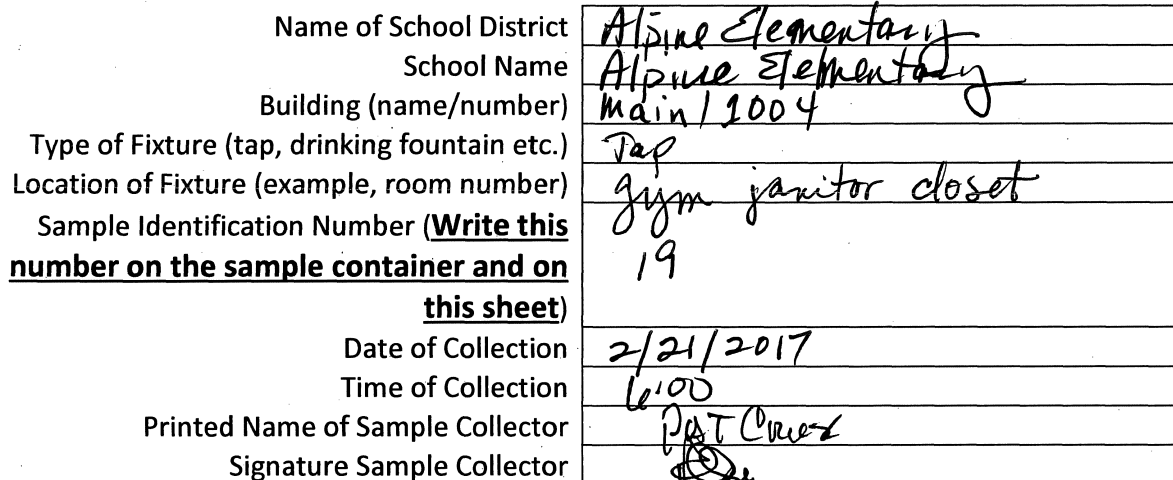 Name of School District Alpine Elementary
School Name Alpine Elementary
Building (name/number) main / 1004
Type of Fixture (tap, drinking fountain etc.) Tap
Location of Fixture (example, room number) gym janitor closet
Sample Identification Number (Write this
number on the sample container and on 19
this sheet)
Date of Collection 2/21/2017
Time of Collection 6:00
Printed Name of Sample Collector
Signature Sample Collector